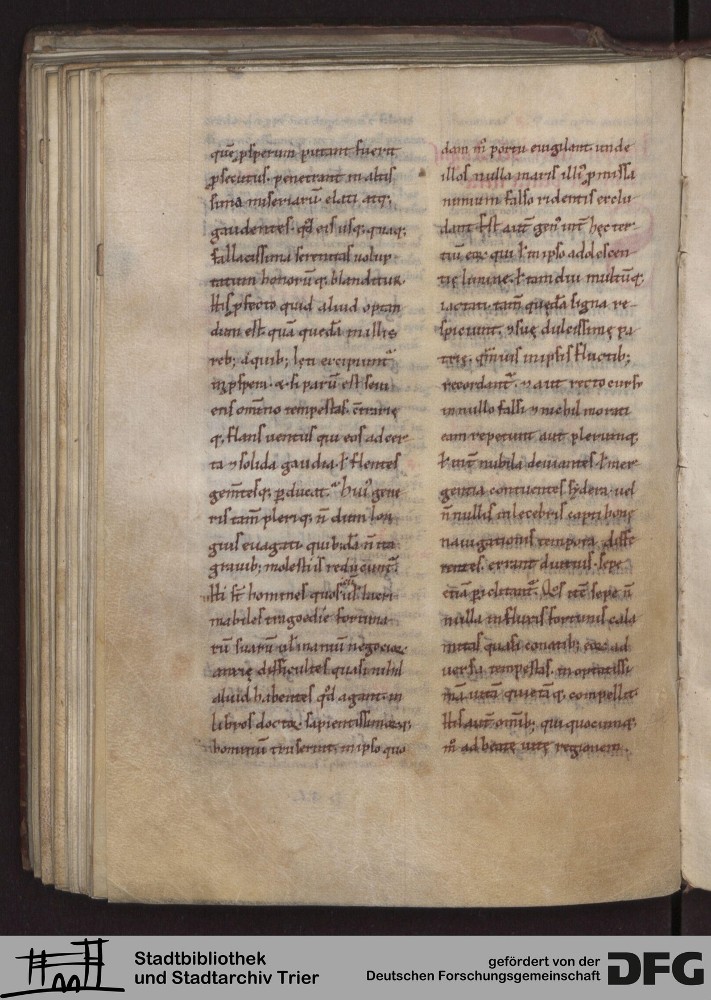 quę ꝓsperum putant fuerit
ꝓsecutus. penetrant in altis
sima miseriarū elati atq;
gaudentes. qđ eis usq; quaq;
fallacissima serenitas uolup
tatum honorūq; blanditur.
His ꝓfecto quid aliud optan
dum est. quā quędā in illis
reb; a quib; lęti excipiunt̃
inꝓspera. & si parū est seui
ens omīno tempestas. c̄trarię
q; flans uentus qui eos ad cer
ta ⁊ solida gaudia. ł flentes
gem̄tesq; ꝑducat. Hui' gene
ris tam̄ pleriq; n̄ dum lon
gius euagati quibdā n̄ ita
grauib; molestiis reducunt̃.
Hi s̄t homines quos cū ł lacri
mabiles tragoedie fortuna
rū suarū uł inaniū negocioꝝ
anxię difficultes quasi nihil
aliud habentes qđ agant. in
libros doctoꝝ sapientissimoꝝq;
hominū truserint. in ipso quo
dam m̊ portu euigilant. unde
illos nulla maris illi' ꝓmissa
nimium falso ridentis exclu
dant. Est aut̄ gen' int̄ hęc ter
tiū eoꝝ. qui ł in ipso adolescen
tię limine. ł iam diu multūq;
iactati. tam̄ quędā signa re-
spiciunt. ⁊ suę dulcissimę pa
trię. q̄muis in ipsis fluctib;
recordant̃. ⁊ aut recto cursu
in nullo falsi ⁊ nichil morati
eam repetunt. aut plerumq;
ł int̄ nubila deuiantes. ł mer-
gentia contuentes sydera. uel
n̄nullis inlecebris capti bonę
nauigationis tempora diffe
rentes. errant diutius. sepe
etiā periclitant̃. Qos itē sepe ñ
nulla in fluxis fortunis cala
mitas quasi conatib; eoꝝ ad
uersa tempestas. in optatissi
mā uitā quietāq; compellit.
His aut̄ omīb; qui quocumq;
m̊ ad beatę uitę regionem.
Stadtbibliothek
und Stadtarchiv Trier
gefördert von der
Deutschen Forschungsgemeinschaft
DFG